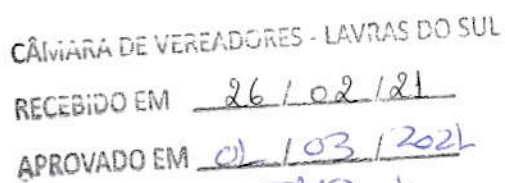 CÂMARA DE VEREADORES - LAVRAS DO SUL
RECEBIDO EM 26 / 02 / 21
APROVADO EM 01 / 03 / 2021